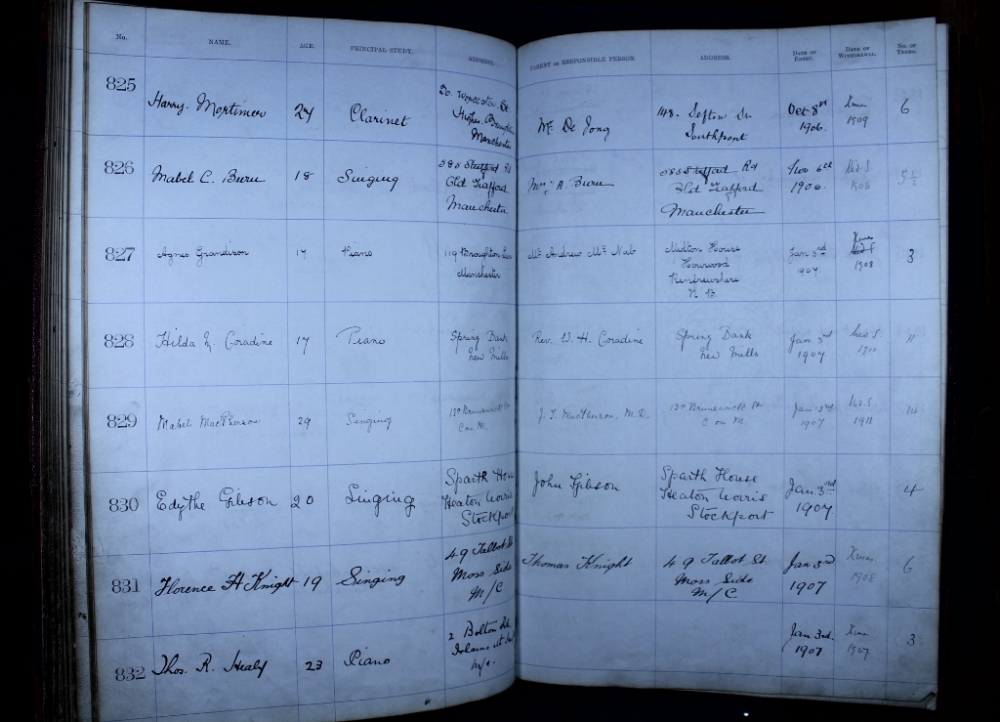 No. NAME. AGE. PRINCIPAL STUDY. ADDRESS. PARENT OR RESPONSIBLE PERSON. ADDRESS. DATE OF ENTRY. DATE OF WITHDRAWAL. NO. OF TERMS.
825 Harry Mortimer 24 Clarinet
Manchester
Mr. De Jong
148. Sefton
Southport
Oct 8th
1906.
1909
6
826 Mabel C. 18 Singing
Old Trafford
Manchester
Rd
Old Trafford
Manchester
Nov 6th
1906.
5 1/2
827 Agnes Grandison 17 Piano
119 Broughton
Manchester
Mr. Andrew Mc Nab
House
Howwood
Renfrewshire
N. B.
Jan 3rd
1907
1908
3
828 Hilda Coradine 17 Piano
Spring Bank
New Mills
Rev. W. H. Coradine
Spring Bank
New Mills
Jan 3rd
1907
829 Mabel MacPherson 29 Singing
C on M.
J. MacPherson, M.D.
Brunswick
C on M.
Jan 3rd
1907
1911
830 Edythe Gibson 20 Singing
Sparth House
Heaton Norris
Stockport
John Gibson
Sparth House
Heaton Norris
Stockport
Jan 3rd
1907
4
831 Florence A Knight 19 Singing
49 Talbot St
Moss Side
M/C
Thomas Knight
49 Talbot St
Moss Side
M/C
Jan 3rd
1907
Xmas
1908
6
832 Thos. R. Healy 23 Piano
2 Bolton
Jan 3rd.
1907
1907
3